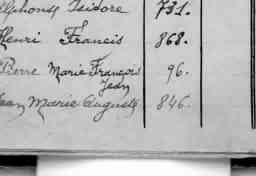 Alphonse Isidore 731.
Henri Francis 868.
Pierre Marie François 96.
Jean
Jean Marie Auguste 846.